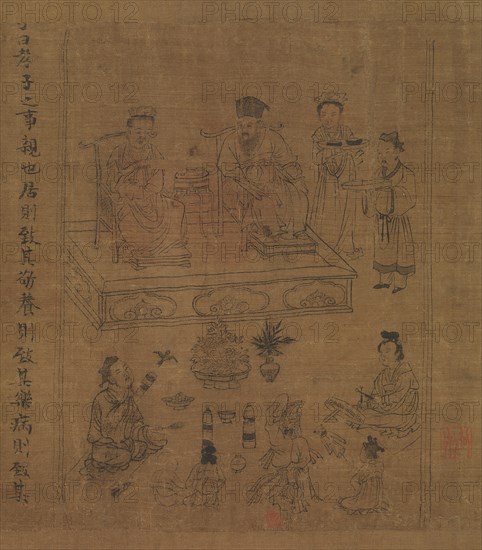 子曰孝子之事親也居則致其敬養則致其樂病則致其
PHOTO 12